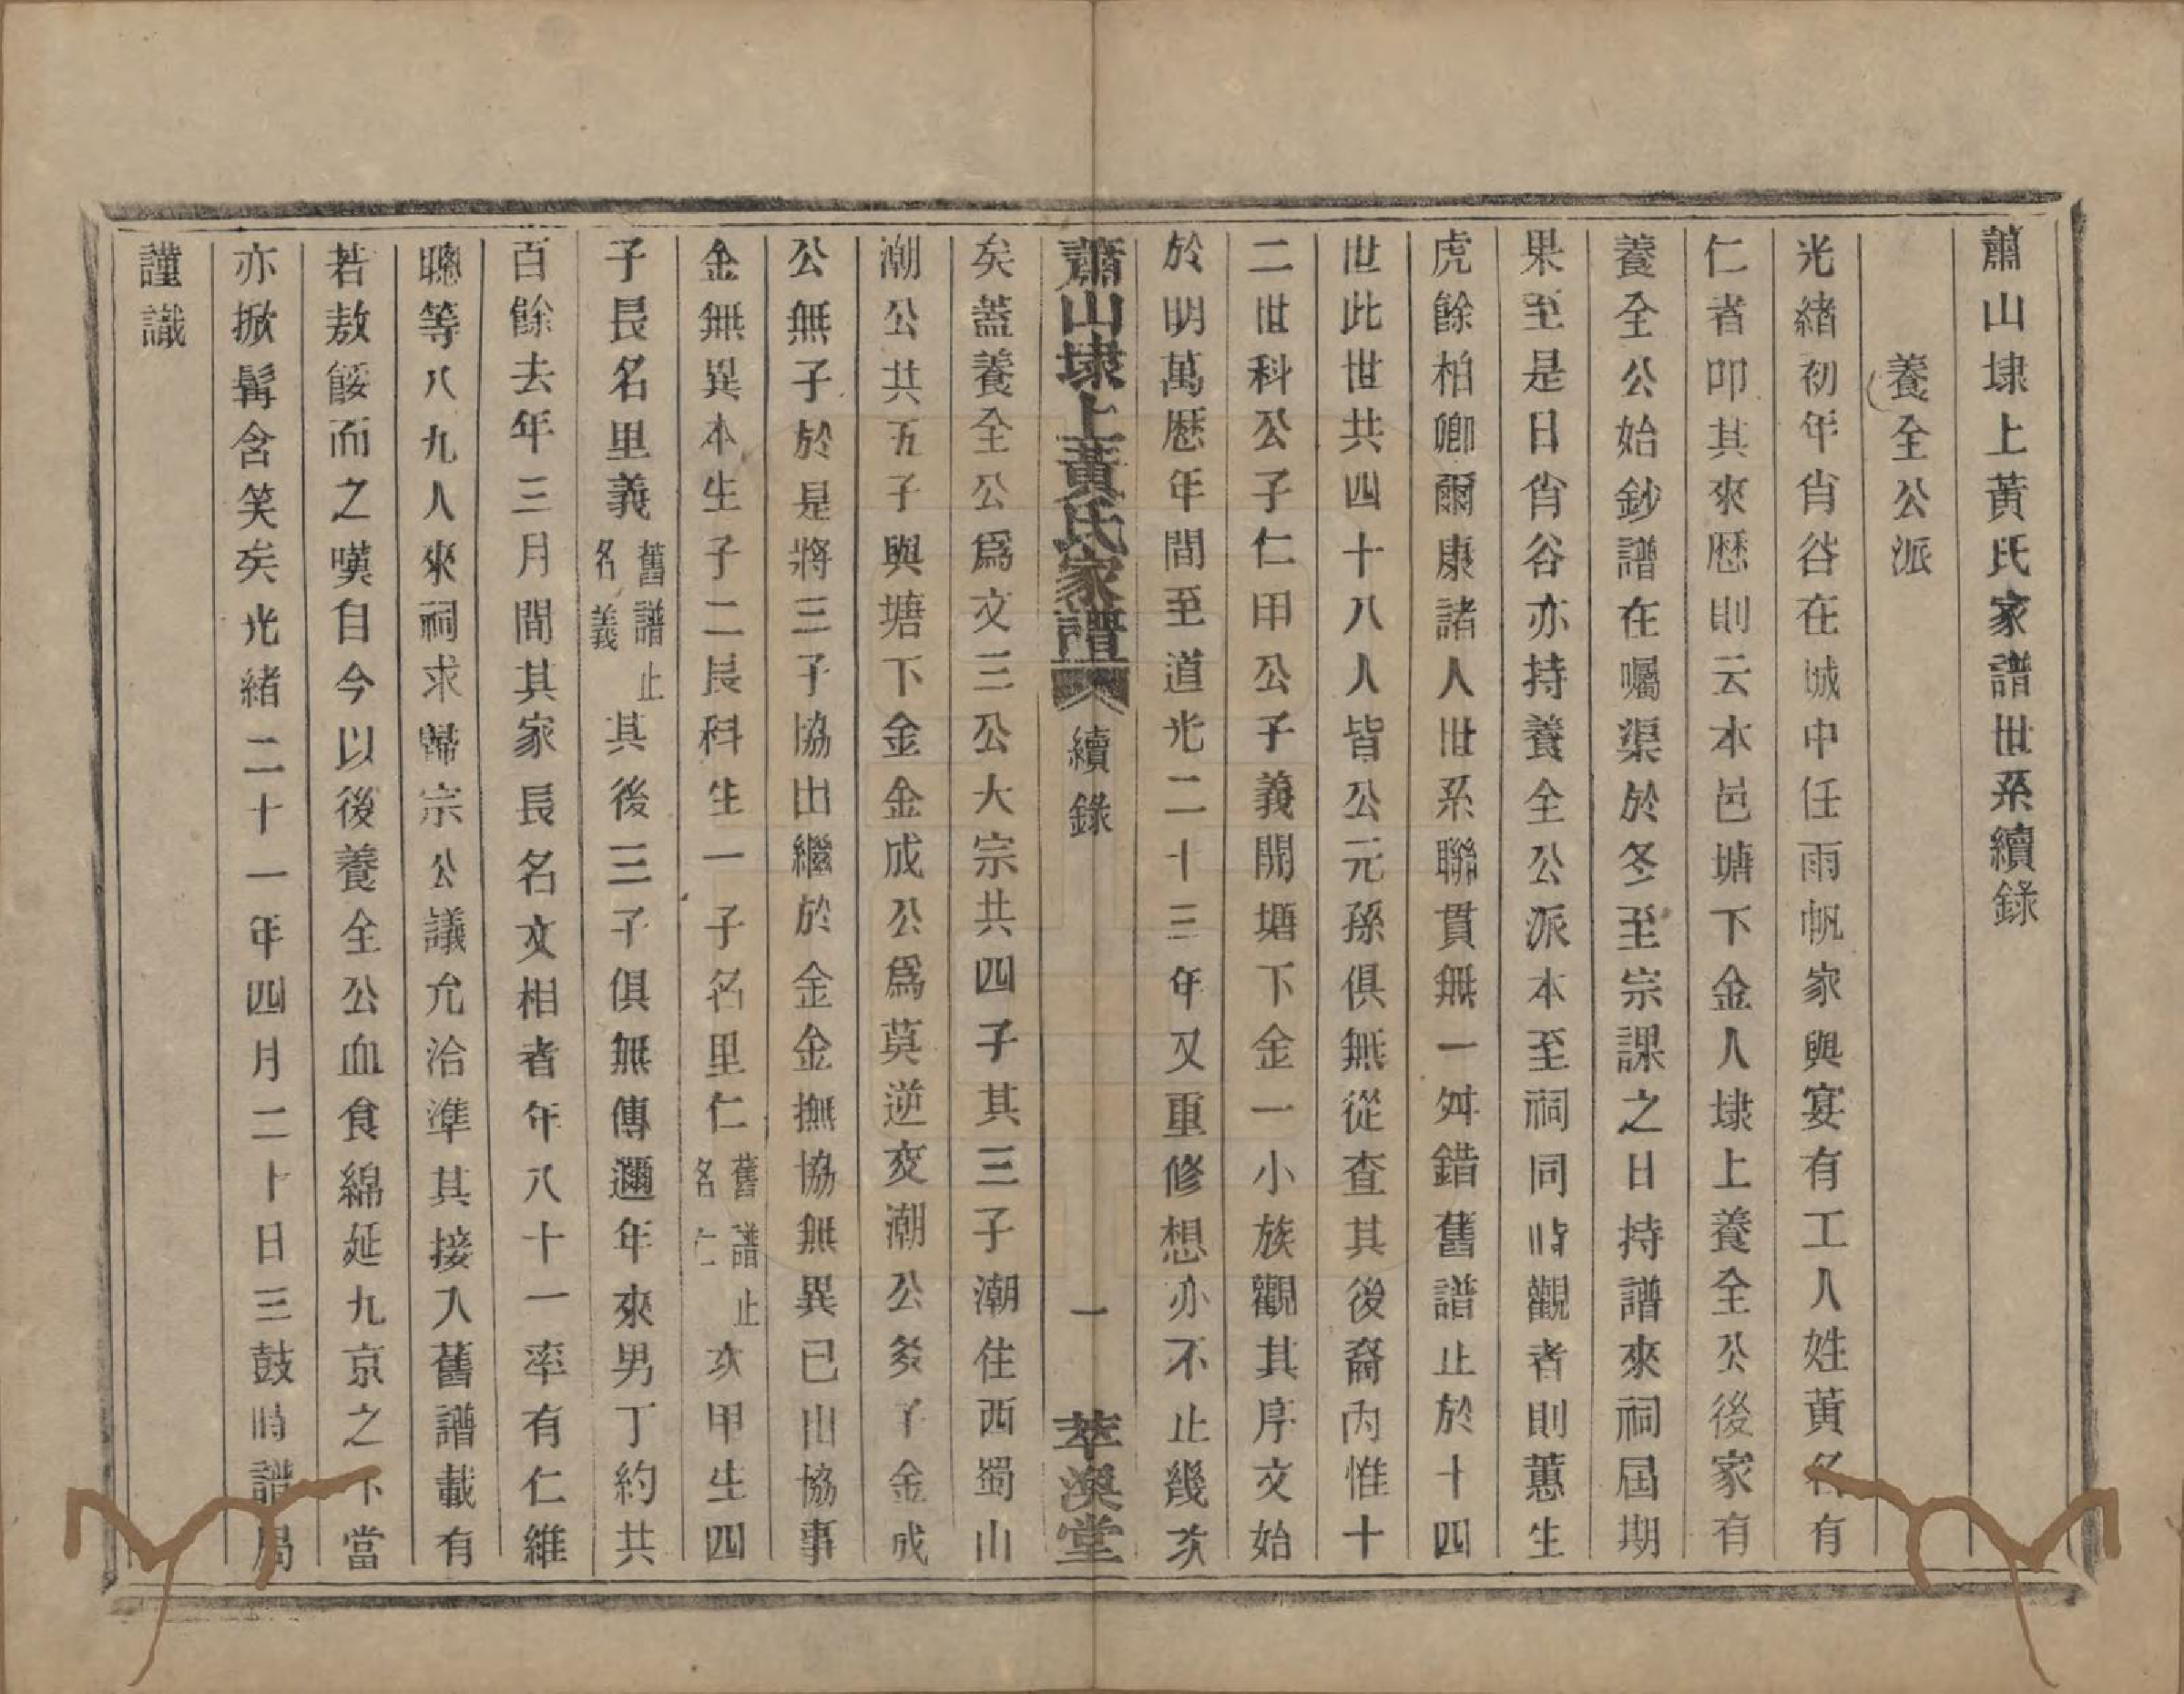 蕭山埭上黃氏家譜世系續錄
養全公派
光緒初年肖谷在城中任雨帆家與宴有工人姓黃名有
仁者叩其來歷則云本邑塘下金人埭上養全公後家有
養全公始鈔譜在囑渠於冬至宗課之日持譜來祠屆期
果至是日肖谷亦持養全公派本至祠同時觀者則蕙生
虎餘柏卿爾康諸人世系聯貫無一舛錯舊譜止於十四
世此世世共四十八人皆公元孫俱無從查其後裔內惟十
二世科公子仁甲公子義開塘下金一小族觀其序文始
於明萬歷年間至道光二十三年又重修想亦不止幾次
蕭山埭上黃氏家譜 續錄 一 萃渙堂
矣蓋養全公為文三公大宗共四子其三子潮住西蜀山
潮公共五子與塘下金金成公為莫逆交潮公多子金成
公無子於是將三子協出繼於金金撫協無異已出協事
金無異本生子二長科生一子名里仁舊譜止名仁次甲生四
子長名里義舊譜止名義其後三子俱無傳邇年來男丁約共
百餘去年三月間其家長名文相者年八十一率有仁維
聰等八九人來祠求歸宗公議允洽準其接入舊譜載有
若敖餒而之嘆自今以後養全公血食綿延九京之下當
亦掀髯含笑矣光緒二十一年四月二十日三鼓時譜局
謹識